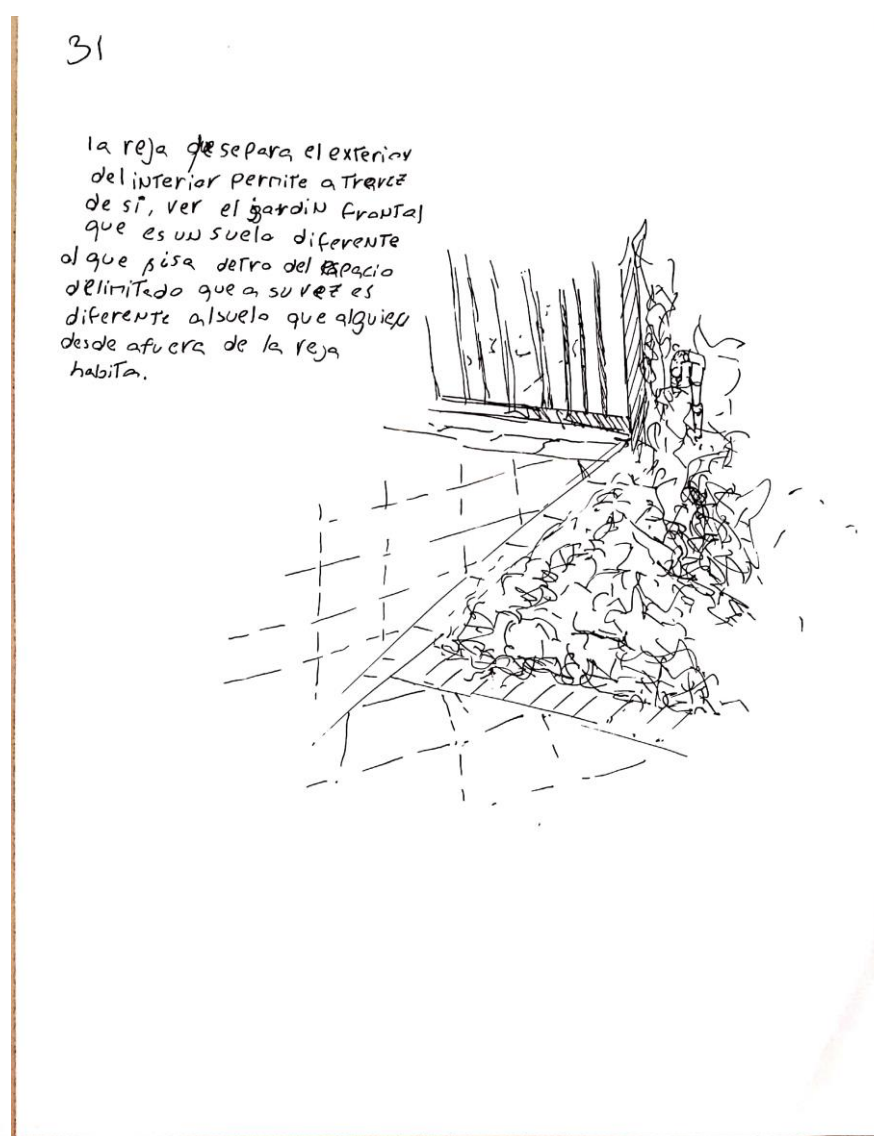 31
la reja que separa el exterior
del interior permite a travez
de si, ver el jardin frontal
que es un suelo diferente
al que pisa detro del espacio
delimitado que a su vez es
diferente al suelo que alguien
desde afuera de la reja
habita.